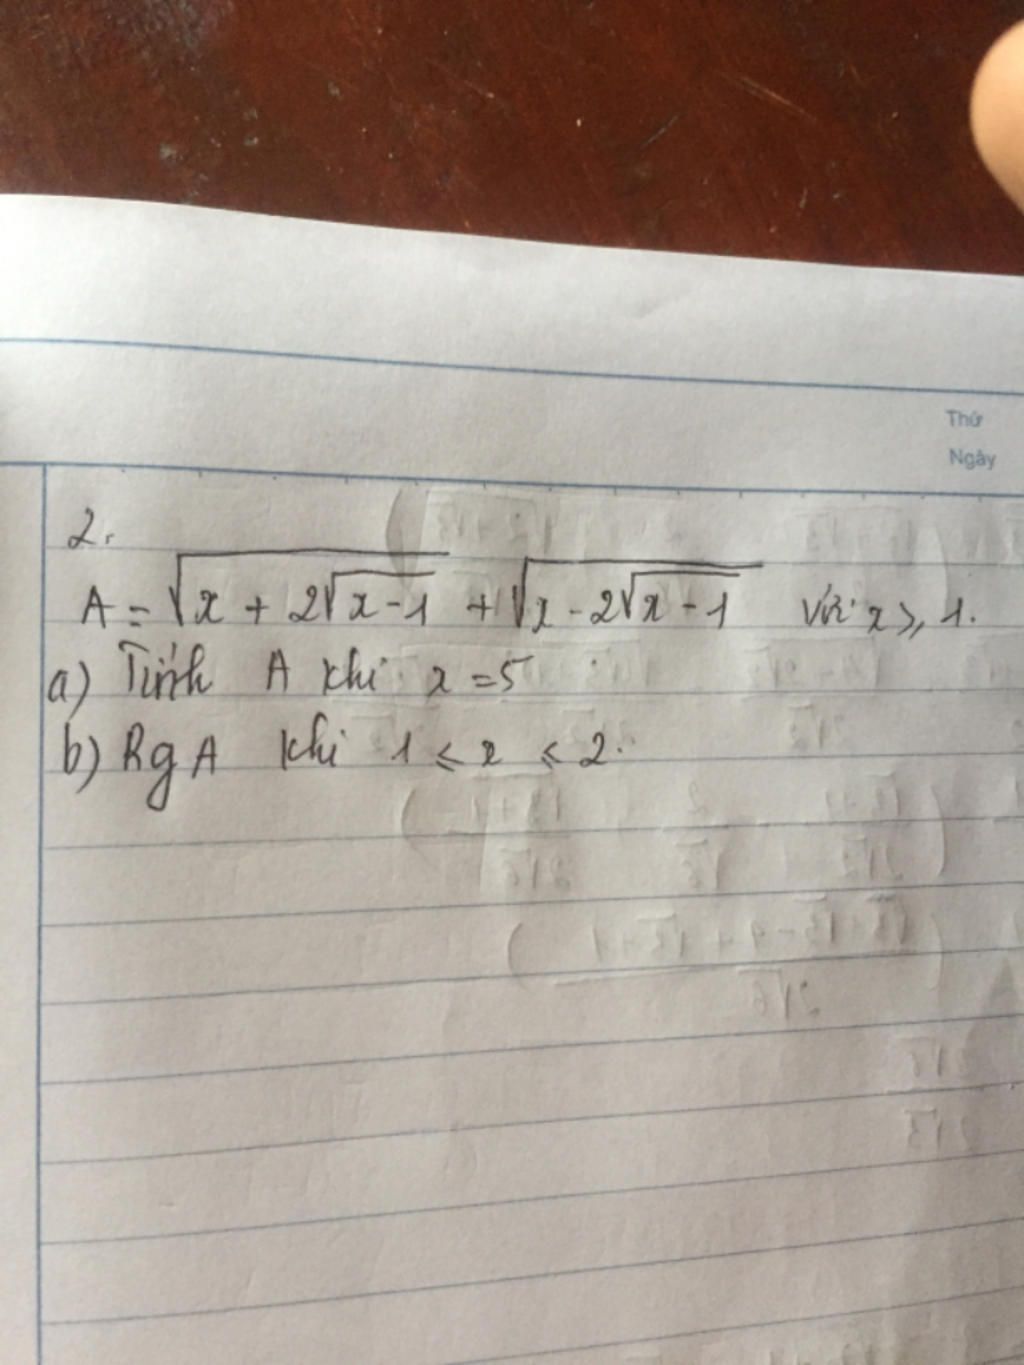 Thứ
Ngày
2.
A = √(x + 2√(x-1)) + √(x - 2√(x-1)) với x ≥ 1.
a) Tính A khi x = 5
b) Rg A khi 1 ≤ x ≤ 2.